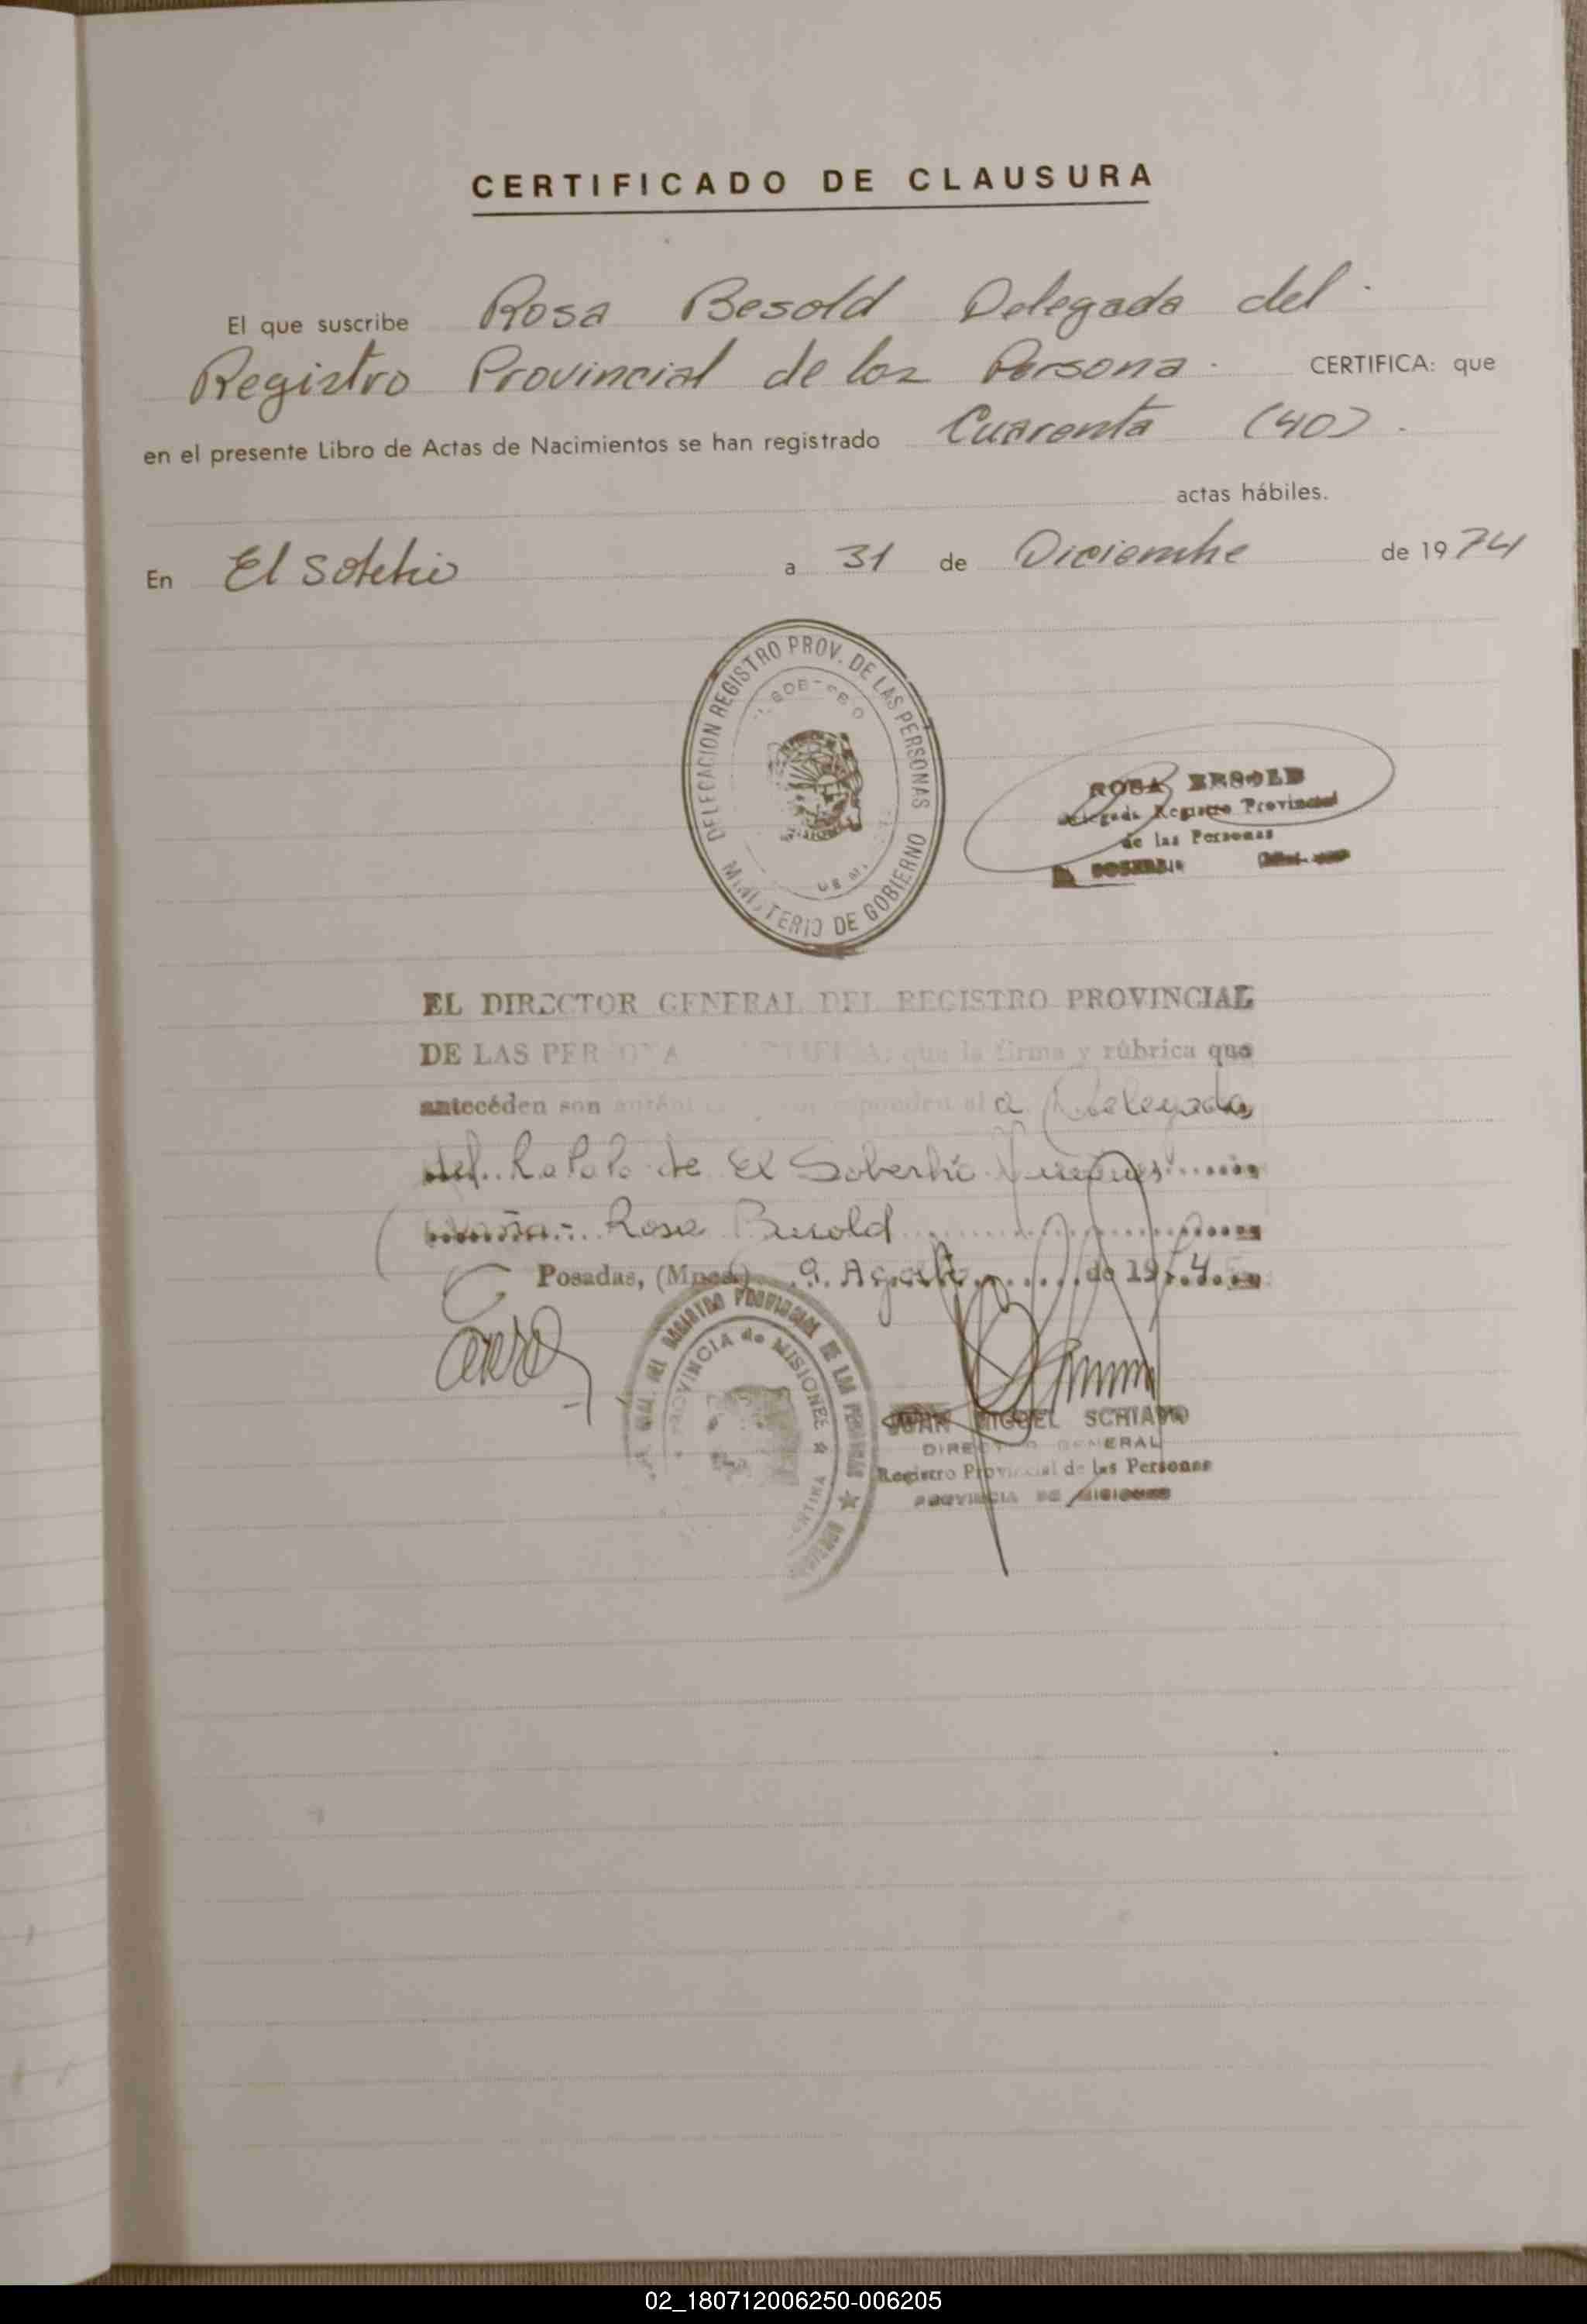 CERTIFICADO DE CLAUSURA
El que suscribe Rosa Besold Delegada del
Registro Provincial de las Persona. CERTIFICA: que
en el presente Libro de Actas de Nacimientos se han registrado Cuarenta (40).
actas hábiles.
En El Soberbio a 31 de Diciembre de 1974
DELEGACION REGISTRO PROV. DE LAS PERSONAS
MINISTERIO DE GOBIERNO
ROSA BESOLD
Delegada Registro Provincial
de las Personas
EL DIRECTOR GENERAL DEL REGISTRO PROVINCIAL
DE LAS PERSONAS CERTIFICA: que la firma y rúbrica que
antecéden son a Delegada
del de El Soberbio
Rosa Besold
Posadas, (Mnes.) 9. Agosto de 19
REGISTRO PROVINCIAL DE LAS PERSONAS
PROVINCIA de MISIONES
JUAN MIGUEL
DIRECTOR GENERAL
Registro Provincial de las Personas
PROVINCIA DE MISIONES
02_180712006250-006205